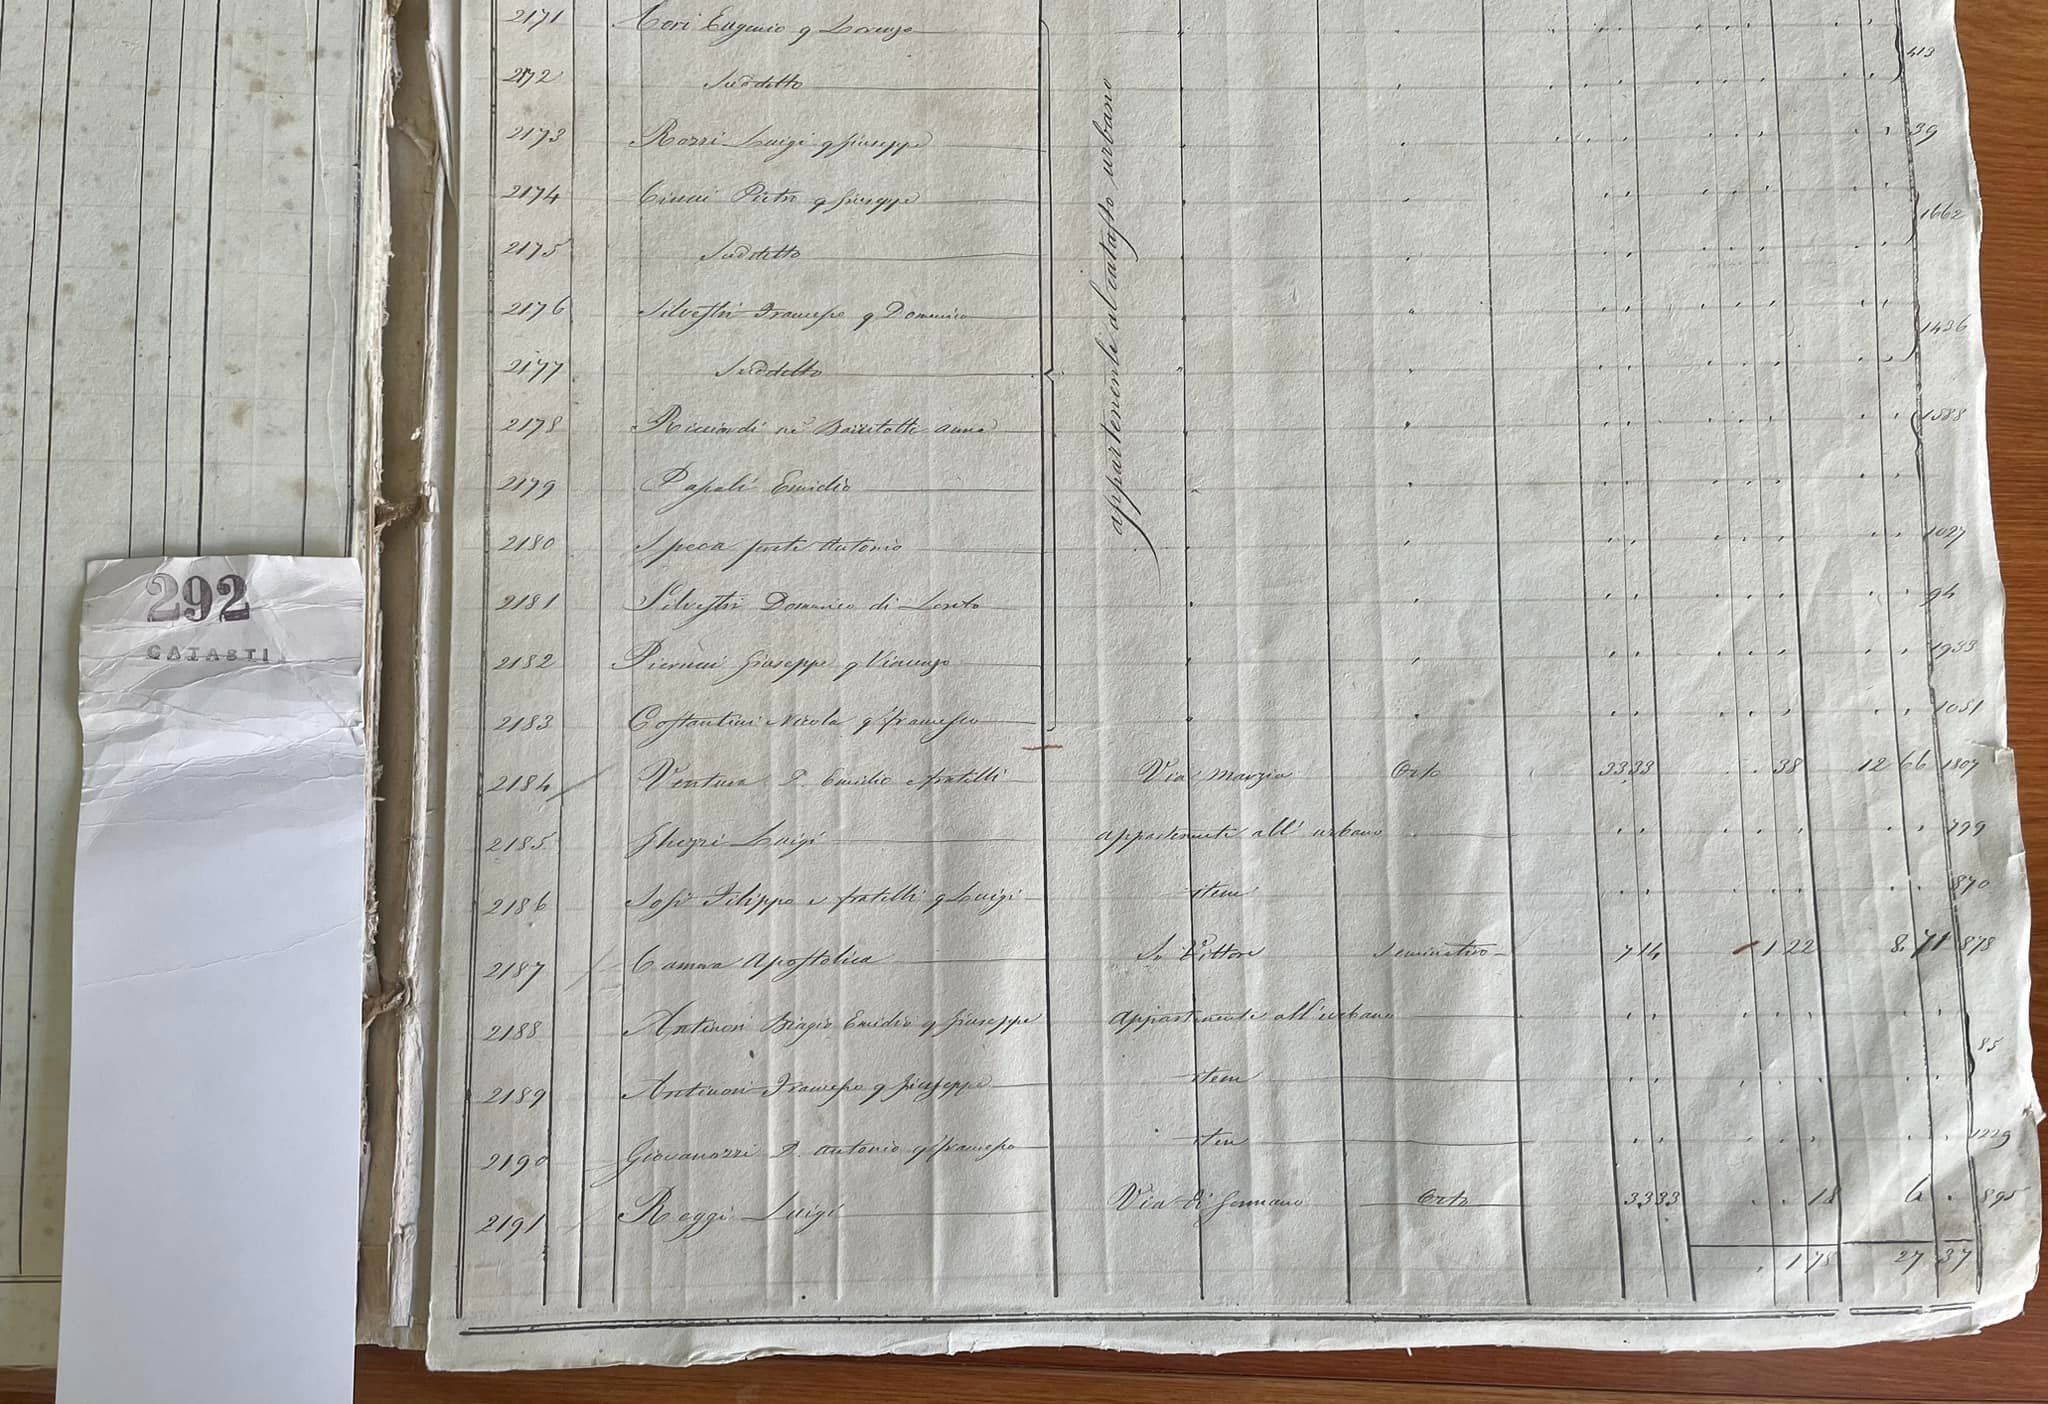 2171 Cori Eugenio q Lorenzo 413
2172 Suddetto
2173 Rozzi Luigi q Giuseppe 39
2174 Ciucci Pietro q Giuseppe 1662
2175 Suddetto
2176 Silvestri Francesco q Domenico 1436
2177 Suddetto
2178 Ricciardi Anna 1588
2179 Papali Emidio
2180 Speca Antonio 1027
2181 Silvestri Domenico di Loreto 94
2182 Pierucci Giuseppe q Vincenzo 1933
2183 Costantini Nicola q Francesco 1051
appartenente al catasto urbano
2184 Ventura D. Emidio e fratelli Via Marzia Orto 33 33 38 12 66 1807
2185 Ghezzi Luigi appartenente all' urbano 799
2186 Sosi Filippo e fratelli q Luigi item 870
2187 Camera Apostolica Sn Vittore Seminativo 7 14 1 22 8. 71 878
2188 Antinori Biagio Emidio q Giuseppe appartenente all' urbano 85
2189 Antinori Francesco q Giuseppe item
2190 Giovanozzi D. Antonio q Francesco item 1229
2191 Reggi Luigi Via di Gennaro Orto 33 33 18 6 . 895
1 78 27 37
292
CATASTI